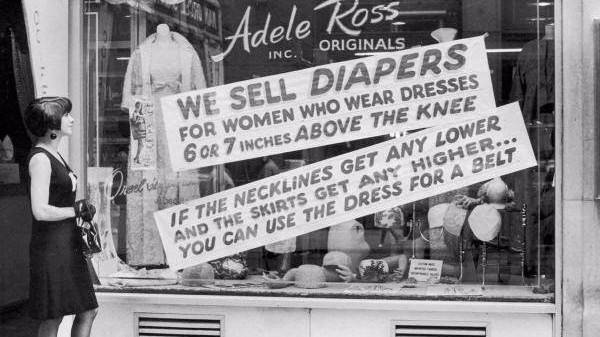 Adele Ross
INC. ORIGINALS
WE SELL DIAPERS
FOR WOMEN WHO WEAR DRESSES
6 OR 7 INCHES ABOVE THE KNEE
IF THE NECKLINES GET ANY LOWER
AND THE SKIRTS GET ANY HIGHER...
YOU CAN USE THE DRESS FOR A BELT